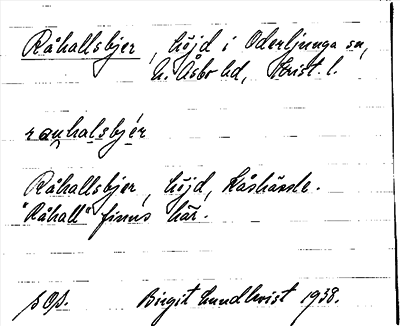 Råhallsbjer, höjd i Oderljunga sn,
N. Åsbo hd, Krist. l.
rauhalsbjér
Råhallsbjer, höjd, Kåshässle.
"Råhall" finns här.
s Op. Birgit Lundkvist 1938.